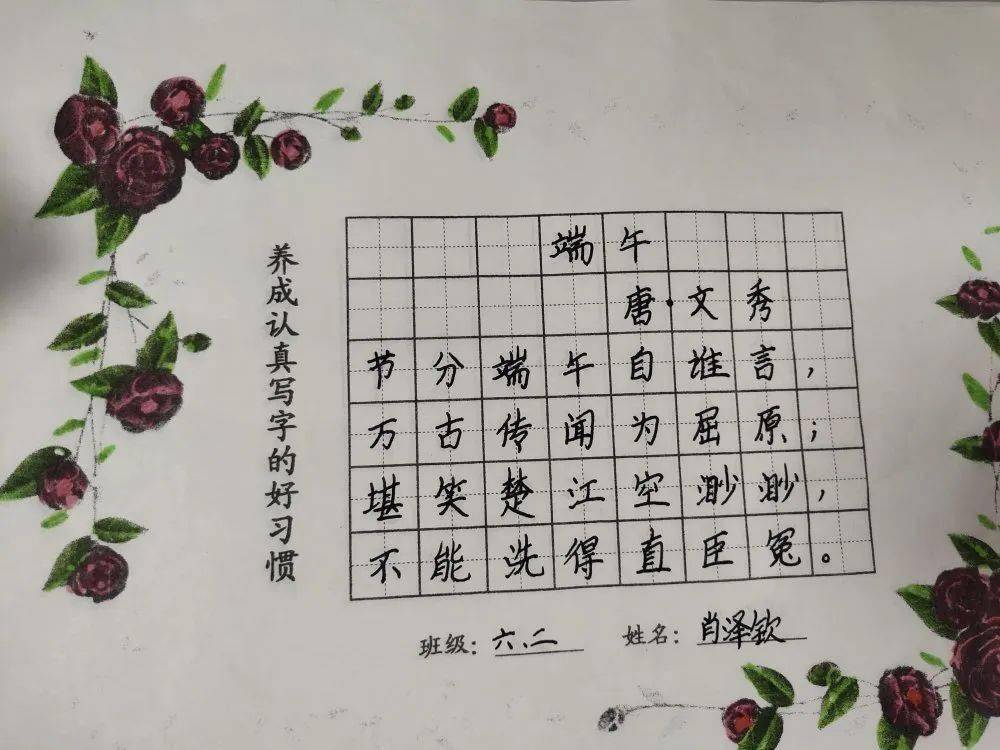 养成认真写字的好习惯
端午
唐·文秀
节分端午自谁言，
万古传闻为屈原；
堪笑楚江空渺渺，
不能洗得直臣冤。
班级：六、二 姓名：肖泽钦